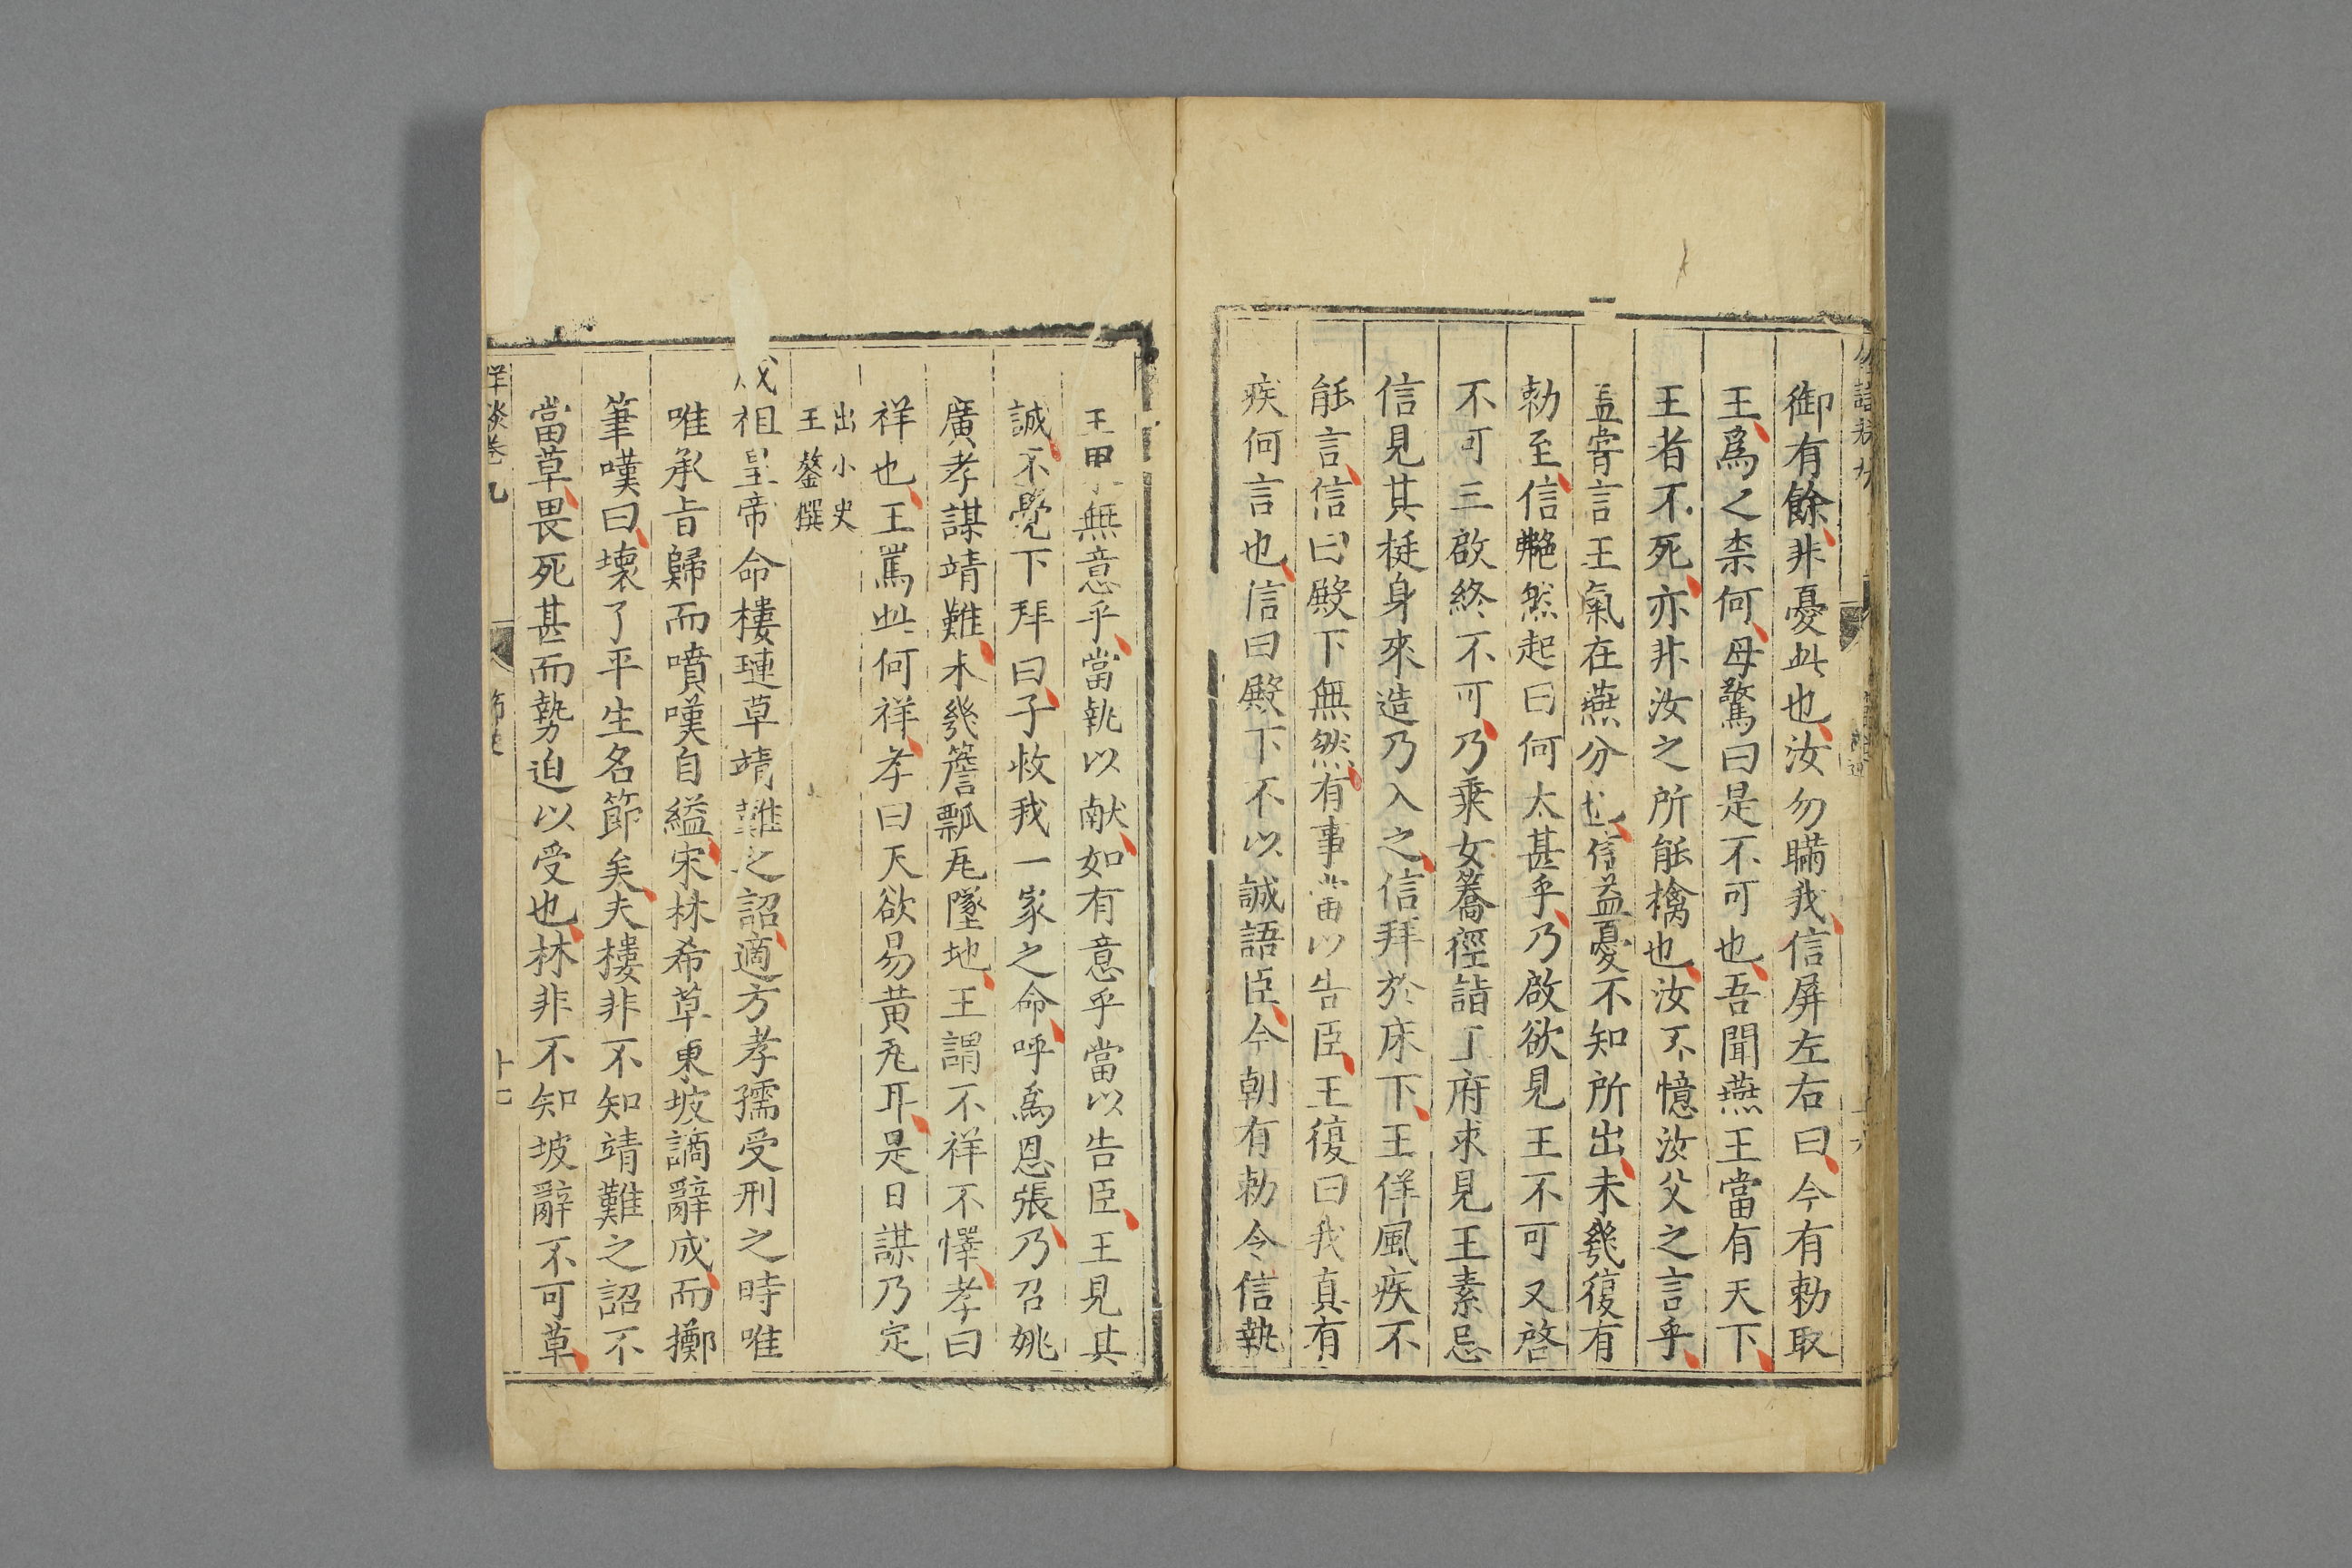 御有餘非憂此也汝勿瞞我信屏左右曰今有勅取
王爲之柰何母驚曰是不可也吾聞燕王當有天下
王者不死亦非汝之所能擒也汝不憶汝父之言乎
盖甞言王氣在燕分也信益憂不知所出未幾復有
勅至信艴然起曰何太甚乎乃啟欲見王不可又啓
不可三啟終不可乃乘女轎徑詣丁府求見王素忌
信見其挺身來造乃入之信拜於床下王佯風疾不
能言信曰殿下無然有事當以告臣王復曰我真有
疾何言也信曰殿下不以誠語臣今朝有勅令信執
王甲無意乎當執以献如有意乎當以告臣王見其
誠不覺下拜曰子救我一家之命呼爲恩張乃召姚
廣孝謀靖難未幾簷瓢瓦墜地王謂不祥不懌孝曰
祥也王罵此何祥孝曰天欲易黄瓦耳是日謀乃定
出小史
王鏊撰
成祖皇帝命樓璉草靖難之詔適方孝孺受刑之時唯
唯承旨歸而噴嘆自縊宋林希草東坡謫辭成而擲
筆嘆曰壞了平生名節矣夫樓非不知靖難之詔不
當草畏死甚而勢迫以受也林非不知坡辭不可草